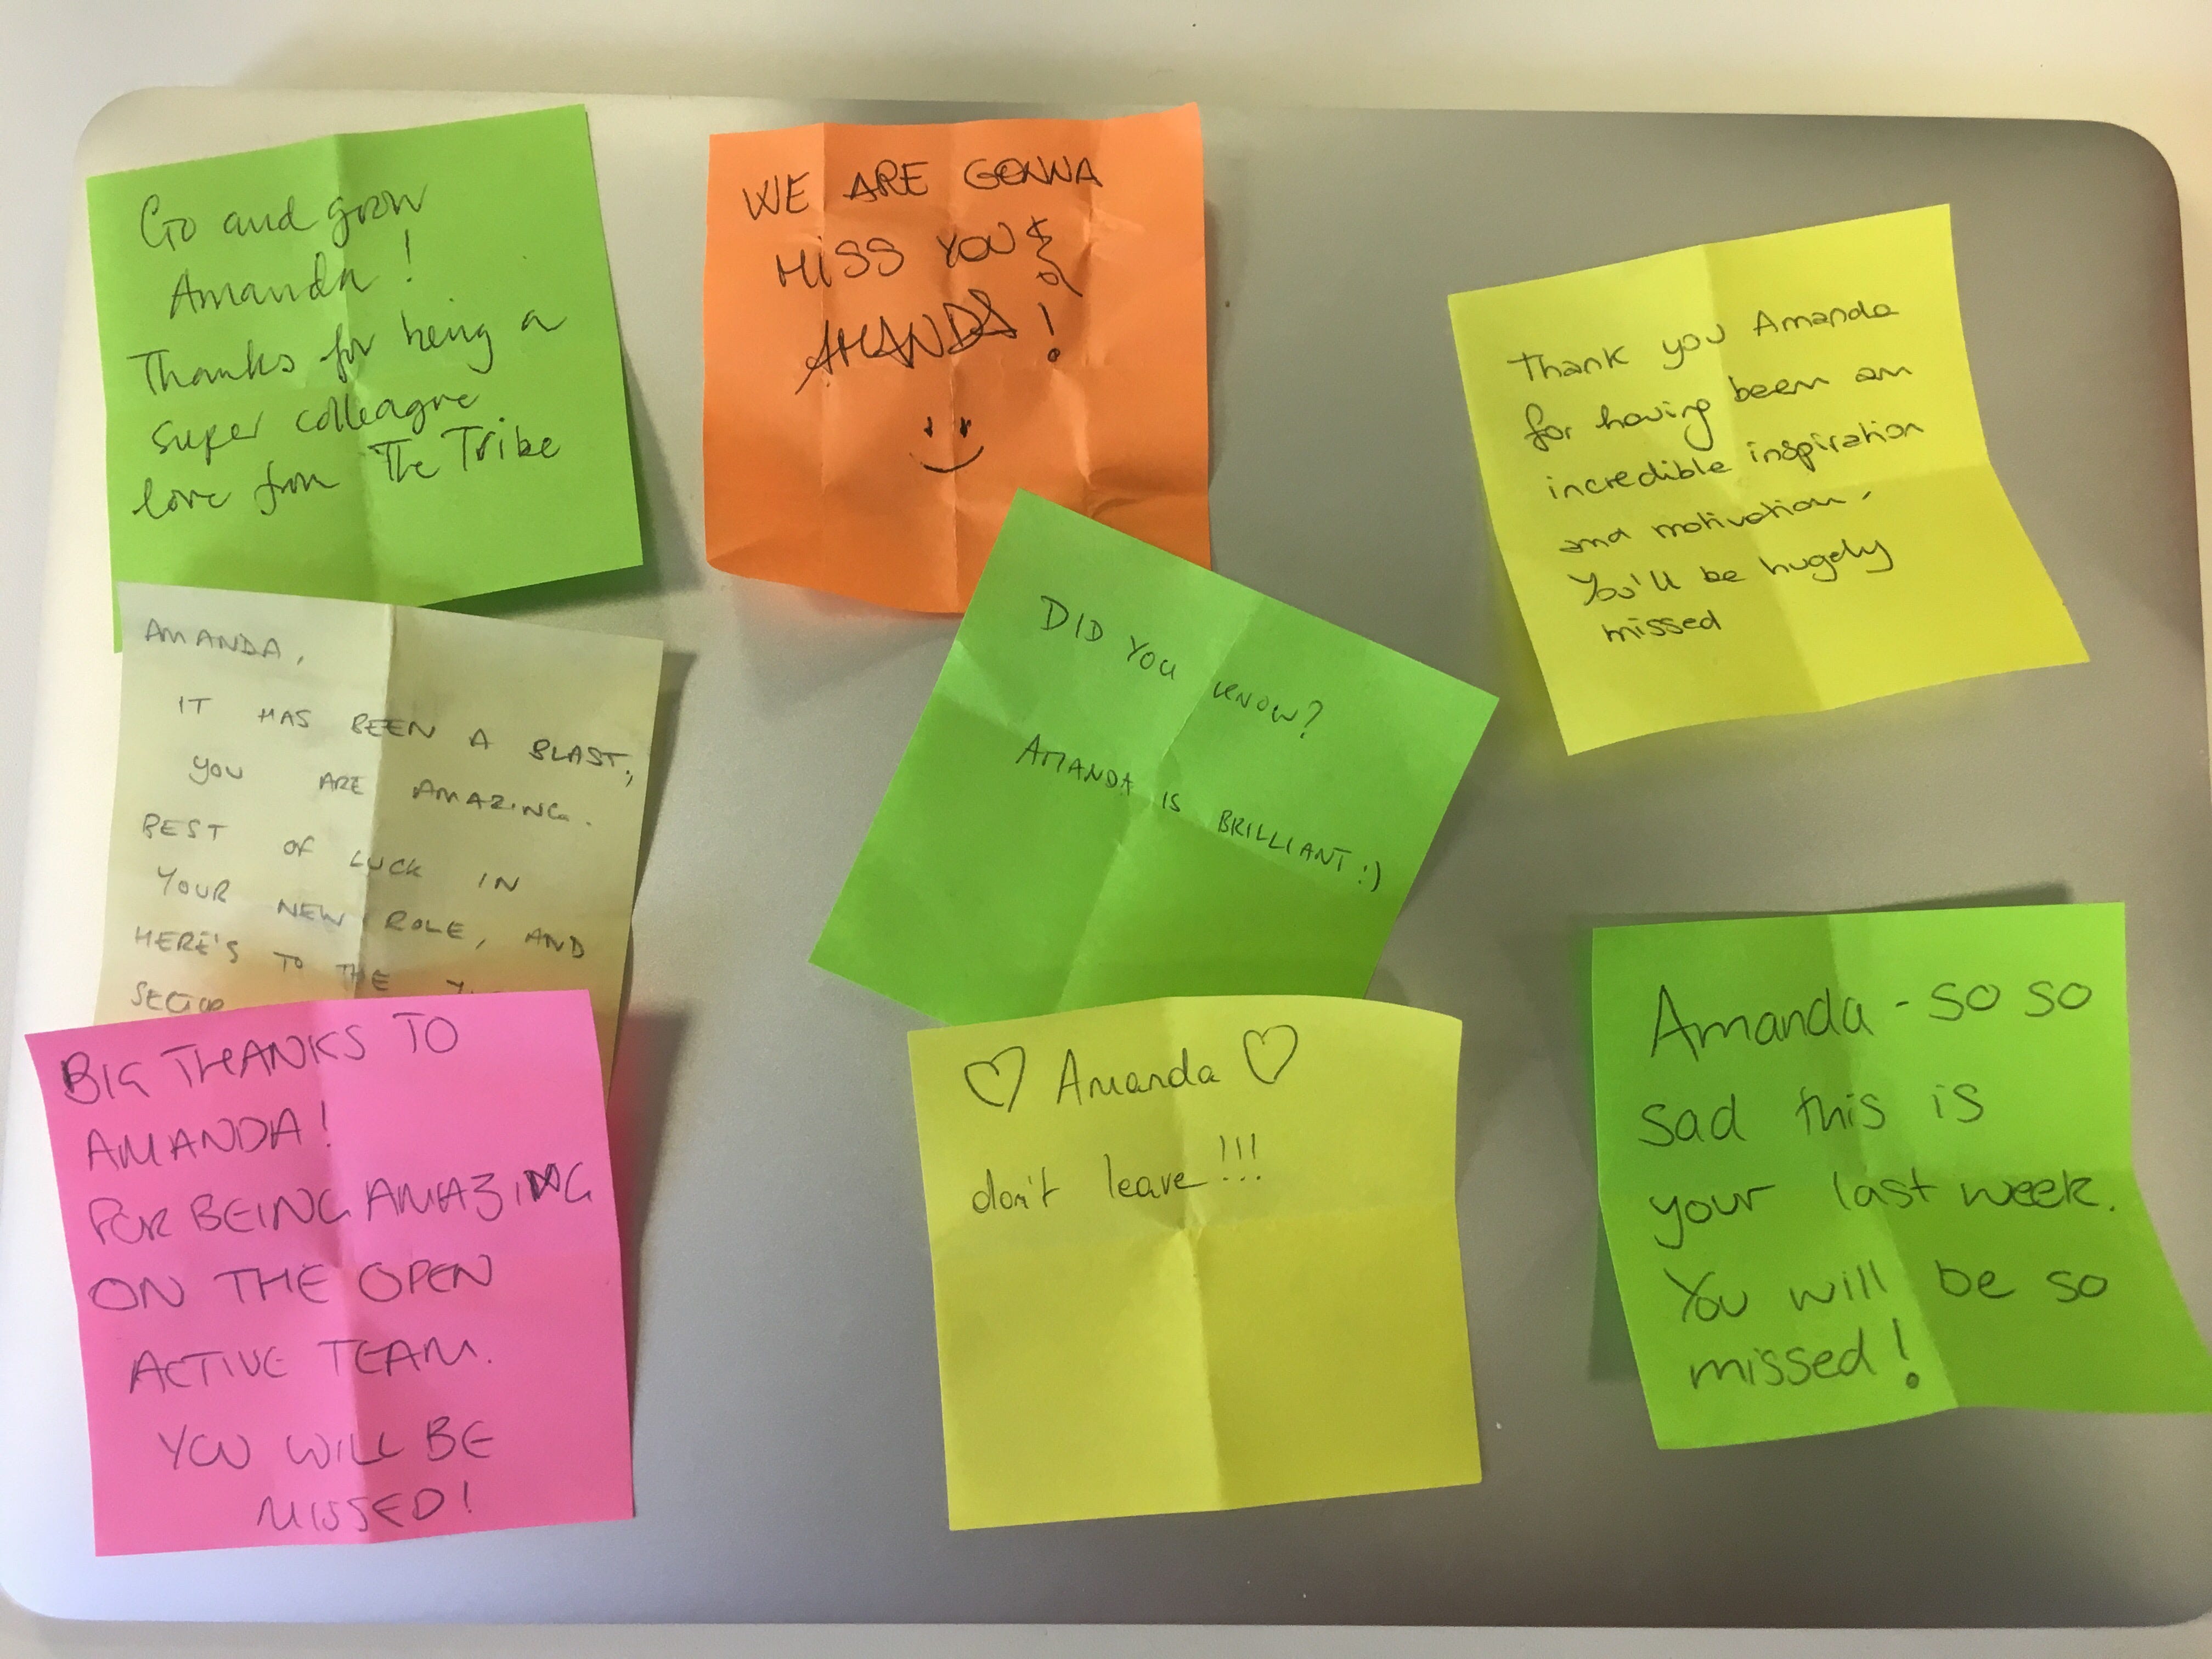 Go and grow
Amanda!
Thanks for being a
super colleague
love from The Tribe
WE ARE GONNA
MiSS YOU
AMANDA!
Thank you Amanda
for having been an
incredible inspiration
and motivation.
You'll be hugely
missed
AMANDA,
IT HAS BEEN A BLAST,
YOU ARE AMAZING.
BEST OF LUCK IN
YOUR NEW ROLE, AND
HERE'S TO THE
DID YOU KNOW?
AMANDA IS BRILLIANT :)
BIG THANKS TO
AMANDA!
FOR BEING AMAZING
ON THE OPEN
ACTIVE TEAM.
YOU WILL BE
MISSED!
♡ Amanda ♡
don't leave!!!
Amanda - so so
sad this is
your last week.
You will be so
missed!